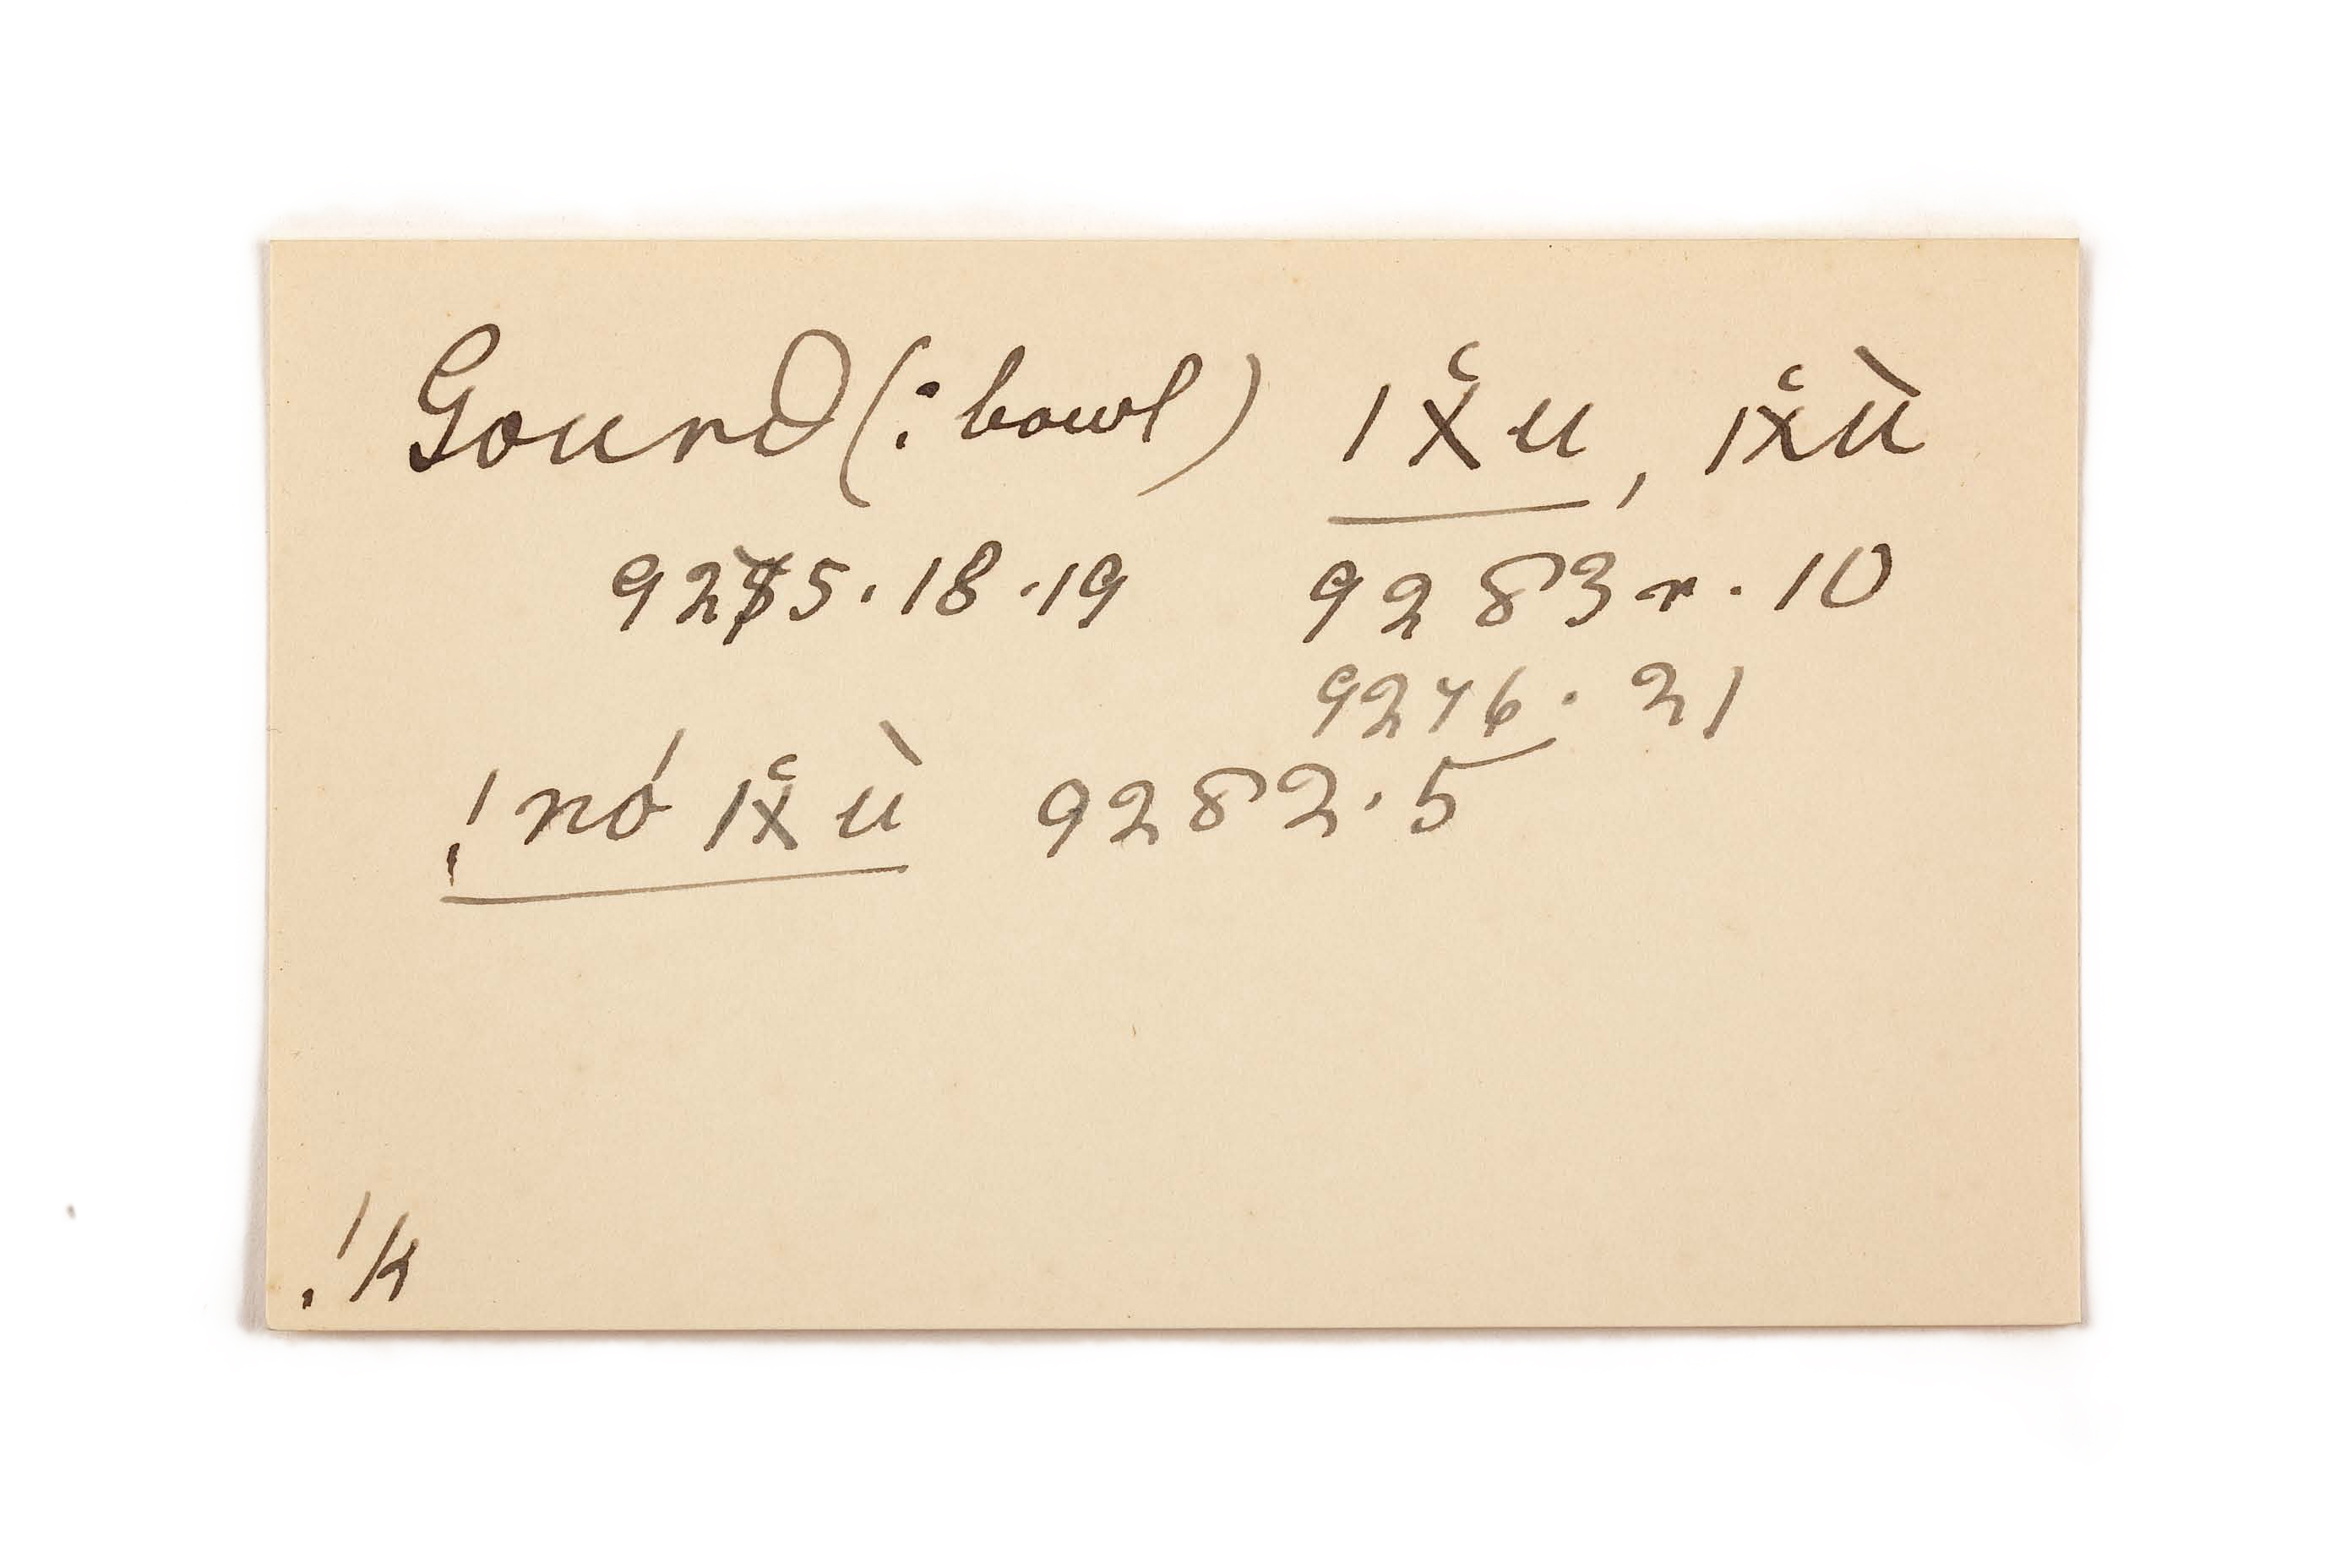 Gourd (: bowl) |x̌u, |x̌ù
9275·18·19 9283r·10
9276·21
!nó |x̌ù 9282·5
!k